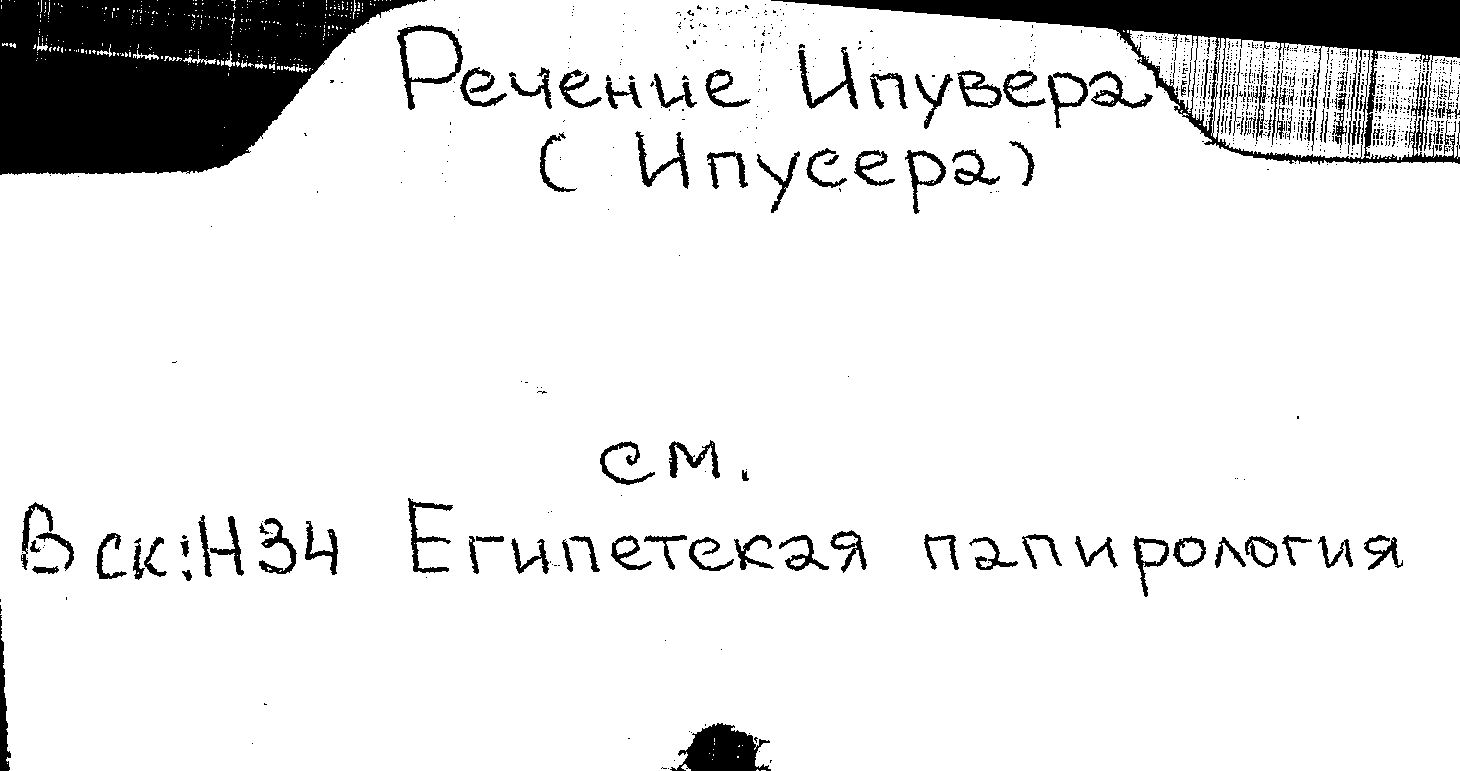 Речение Ипувера
( Ипусера)
см.
Вск:Н34 Египетская папирология